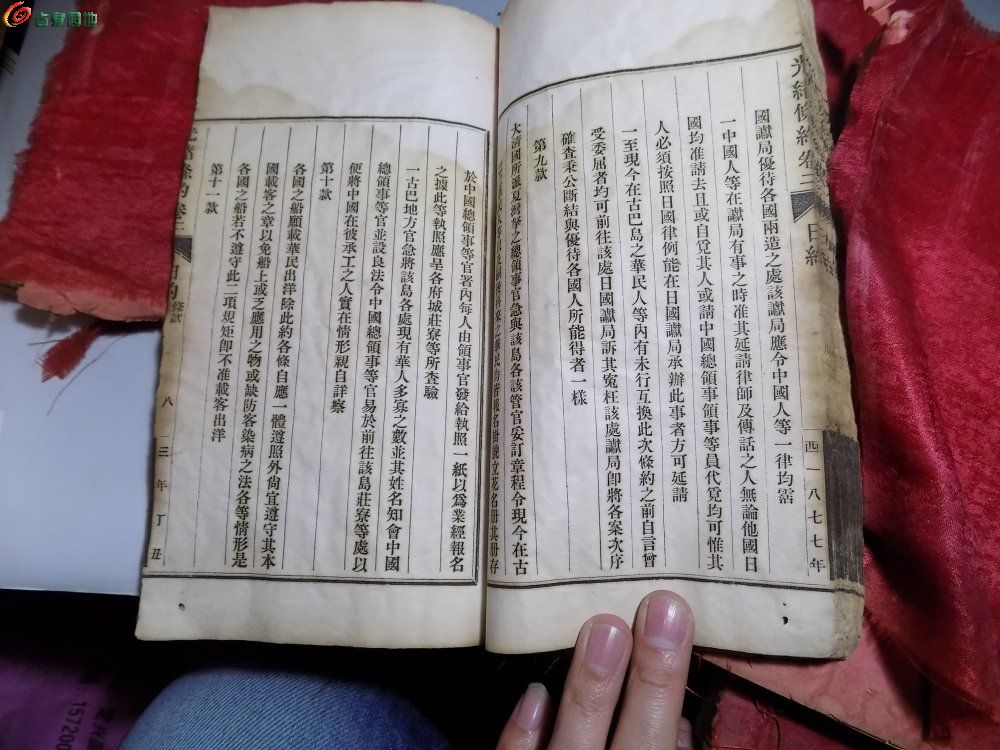 古泉园地
光緒條約卷二 日約
西一八七七年
國讞局優待各國兩造之處該讞局應令中國人等一律均霑
一中國人等在讞局有事之時准其延請律師及傳話之人無論他國日
國均准請去且或自覓其人或請中國總領事領事等員代覓均可惟其
人必須按照日國律例能在日國讞局承辦此事者方可延請
一至現今在古巴島之華民人等內有未行互換此次條約之前自言曾
受委屈者均可前往該處日國讞局訴其寃枉該處讞局卽將各案次序
確查秉公斷結與優待各國人所能得者一樣
第九款
大淸國所派夏灣拏之總領事官急與該島各該管官妥訂章程令現今在古
華民均皆報名掛號立花名册其册存
於中國總領事等官署內每人由領事官發給執照一紙以爲業經報名
之據此等執照應呈各府城莊寮等所查驗
一古巴地方官急將該島各處現有華人多寡之數並其姓名知會中國
總領事等官並設良法令中國總領事等官易於前往該島莊寮等處以
便將中國在彼承工之人實在情形親自詳察
第十款
各國之船願載華民出洋除此約各條自應一體遵照外尙宜遵守其本
國載客之章以免船上或乏應用之物或缺防客染病之法各等情形是
各國之船若不遵守此二項規矩卽不准載客出洋
第十一款
條款
八三年丁丑
15720